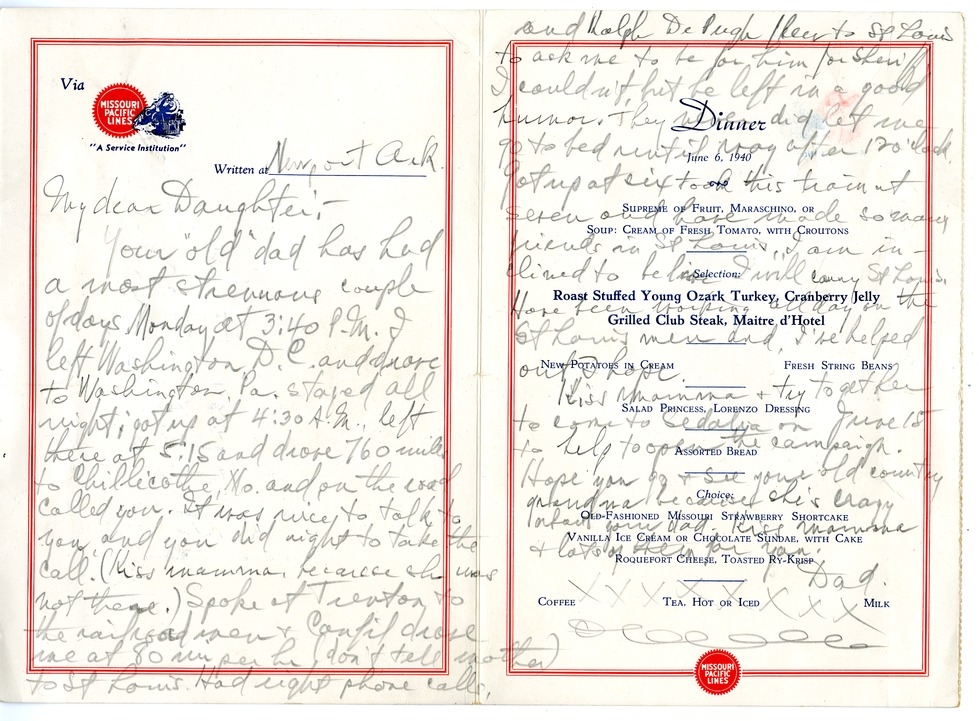 Via
MISSOURI
PACIFIC
LINES
"A Service Institution"
Written at Newport Ark.
My dear Daughter:-
Your "old" dad has had
a most strenuous couple
of days. Monday at 3:40 P.M. I
left Washington D.C. and drove
to Washington, Pa. stayed all
night, got up at 4:30 A.M. left
there at 5:15 and drove 760 miles
to Chillicothe, Mo. and on the road
called you. It was nice to talk to
you, and you did right to take the
call. (Kiss mamma, because she was
not there.) Spoke at Trenton to
the railroad men & Canfil drove
me at 80 mi per hr (don't tell mother)
to St Louis. Had eight phone calls,
and Ralph De Pugh to St Louis
to ask me to be for him for Sheriff
I couldn't, but he left in a good
humor. They did let me
go to bed until way after 12 o'clock
Got up at six took this train at
seven and have made so many
friends in St Louis, I am in-
clined to believe I will carry St Louis.
Have been working all day on the
St Louis men and I've helped
out I hope.
Kiss mamma & try to get her
to come to Sedalia on June 15
to help to open the campaign.
Hope you go & see your old country
grandma because she's crazy
about your dad. Kiss mamma
& lots of them for you.
Dad.
X X X X X X X X X
Dinner
June 6, 1940
Supreme of Fruit, Maraschino, or
Soup: Cream of Fresh Tomato, with Croutons
Selection:
Roast Stuffed Young Ozark Turkey, Cranberry Jelly
Grilled Club Steak, Maitre d'Hotel
New Potatoes in Cream Fresh String Beans
Salad Princess, Lorenzo Dressing
Assorted Bread
Choice:
Old-Fashioned Missouri Strawberry Shortcake
Vanilla Ice Cream or Chocolate Sundae, with Cake
Roquefort Cheese, Toasted Ry-Krisp
Coffee Tea, Hot or Iced Milk
MISSOURI
PACIFIC
LINES